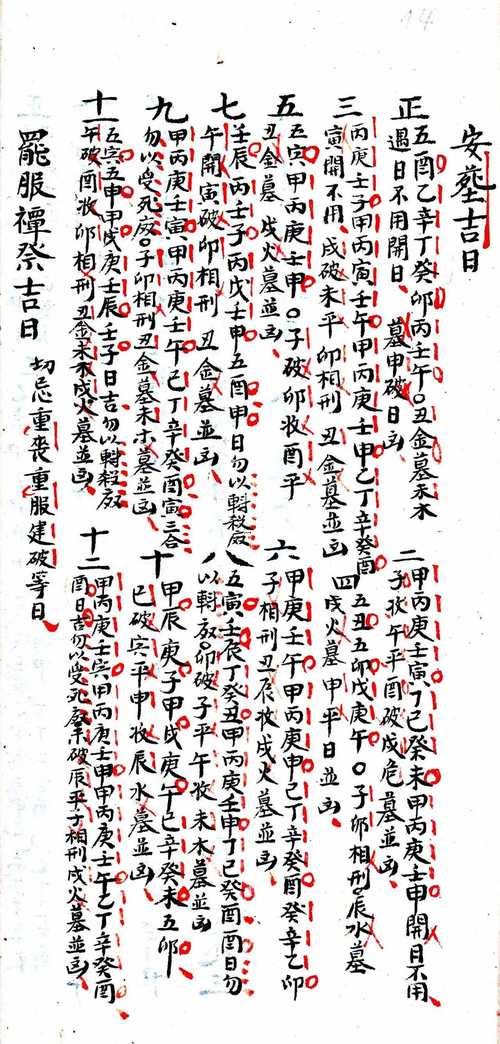 14
安葬吉日
正
五酉乙辛丁癸卯丙壬午〇丑金墓未木
遇日不用開日、墓申破日凶、
二
甲丙庚壬寅、丁己癸未甲丙庚壬申開日不用
子收午平酉破戌危墓並凶、
三
丙庚壬子甲丙寅壬午甲丙庚壬申乙丁辛癸酉
寅開不用、戌破未平卯相刑丑金墓並凶
四
五丑五卯戊庚午〇子卯相刑辰水墓
戌火墓申平日並凶、
五
五寅甲丙庚壬申〇子破卯收酉平
丑金墓戌火墓並凶、
六
甲庚壬午甲丙庚申乙丁辛癸酉癸辛乙卯
子相刑丑辰收戌火墓並凶、
七
壬辰丙壬子丙戊壬申五酉申日勿以轉殺廢
午開寅破卯相刑丑金墓並凶、
八
五寅、壬辰丁癸丑甲丙庚壬申丁己癸酉酉日勿
以轉廢卯破子平午收未木墓並凶
九
甲丙庚壬寅、甲丙庚壬午乙丁辛癸酉寅三合
勿以受死廢〇子卯相刑丑金墓未木墓並凶、
十
甲辰庚子甲戌庚午乙辛癸未五卯
巳破寅平申收辰水墓並凶、
十一
五寅五申甲戌庚壬辰壬子日吉勿以轉殺廢
午破酉收卯相刑丑金未木戌火墓並凶、
十二
甲丙庚壬寅甲丙庚壬申甲丙庚壬午乙丁辛癸酉
酉日吉勿以受死廢未破辰平子相刑戌火墓並凶、
罷服禫祭吉日
切忌重喪重服建破等日、